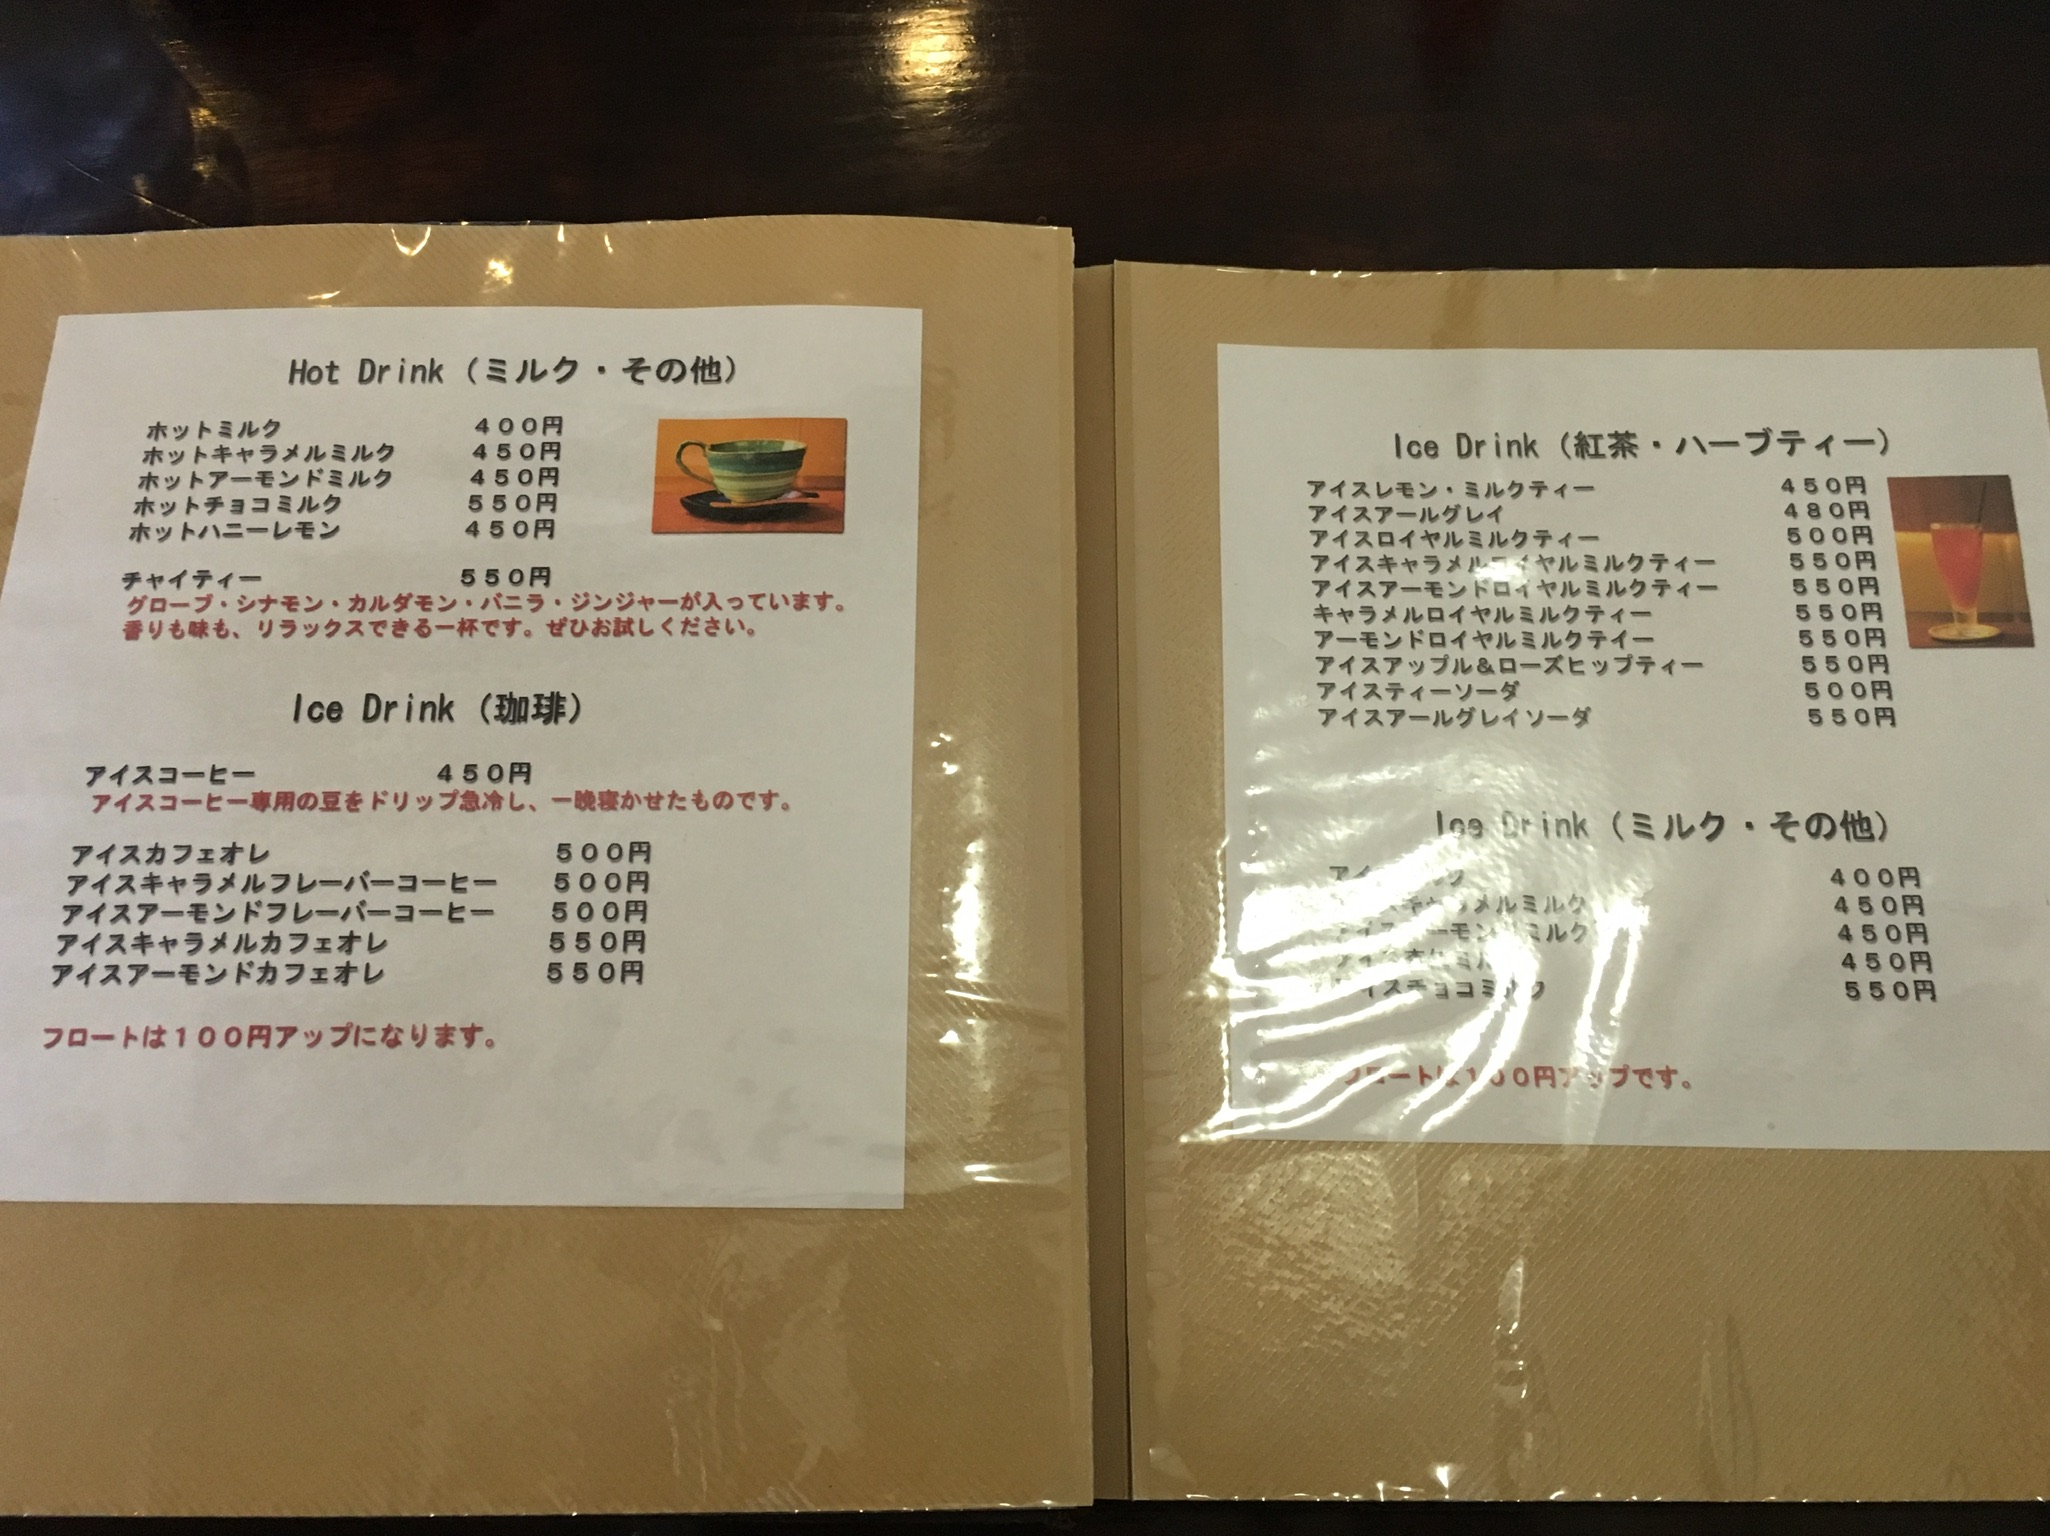 Hot Drink (ミルク・その他)
ホットミルク 400円
ホットキャラメルミルク 450円
ホットアーモンドミルク 450円
ホットチョコミルク 550円
ホットハニーレモン 450円
チャイティー 550円
グローブ・シナモン・カルダモン・バニラ・ジンジャーが入っています。
香りも味も、リラックスできる一杯です。ぜひお試しください。
Ice Drink (珈琲)
アイスコーヒー 450円
アイスコーヒー専用の豆をドリップ急冷し、一晩寝かせたものです。
アイスカフェオレ 500円
アイスキャラメルフレーバーコーヒー 500円
アイスアーモンドフレーバーコーヒー 500円
アイスキャラメルカフェオレ 550円
アイスアーモンドカフェオレ 550円
フロートは100円アップになります。
Ice Drink (紅茶・ハーブティー)
アイスレモン・ミルクティー 450円
アイスアールグレイ 480円
アイスロイヤルミルクティー 500円
アイスキャラメルロイヤルミルクティー 550円
アイスアーモンドロイヤルミルクティー 550円
キャラメルロイヤルミルクティー 550円
アーモンドロイヤルミルクテイー 550円
アイスアップル&ローズヒップティー 550円
アイスティーソーダ 500円
アイスアールグレイソーダ 550円
Ice Drink (ミルク・その他)
アイスミルク 400円
アイスキャラメルミルク 450円
アイスアーモンドミルク 450円
450円
アイスチョコミルク 550円
フロートは100円アップです。